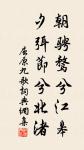 朝騁騖兮江皋
夕弭節兮北渚
屈原九歌詞典網集